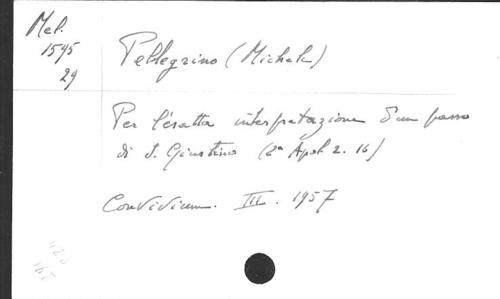 Mel.
1595
29
Pellegrino (Michele)
Per l'esatta interpretazione d'un passo
di S. Giustino (2a Apol. 2. 16)
Convivium. III. 1957